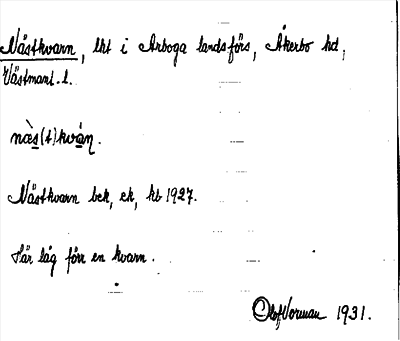 Nästkvarn, lht i Arboga landsförs, Åkerbo hd,
Västmanl. l.
næ̀s(t)kvàṇ.
Nästkvarn bek, ek, kb 1927.
Här låg förr en kvarn.
Olof Norman 1931.